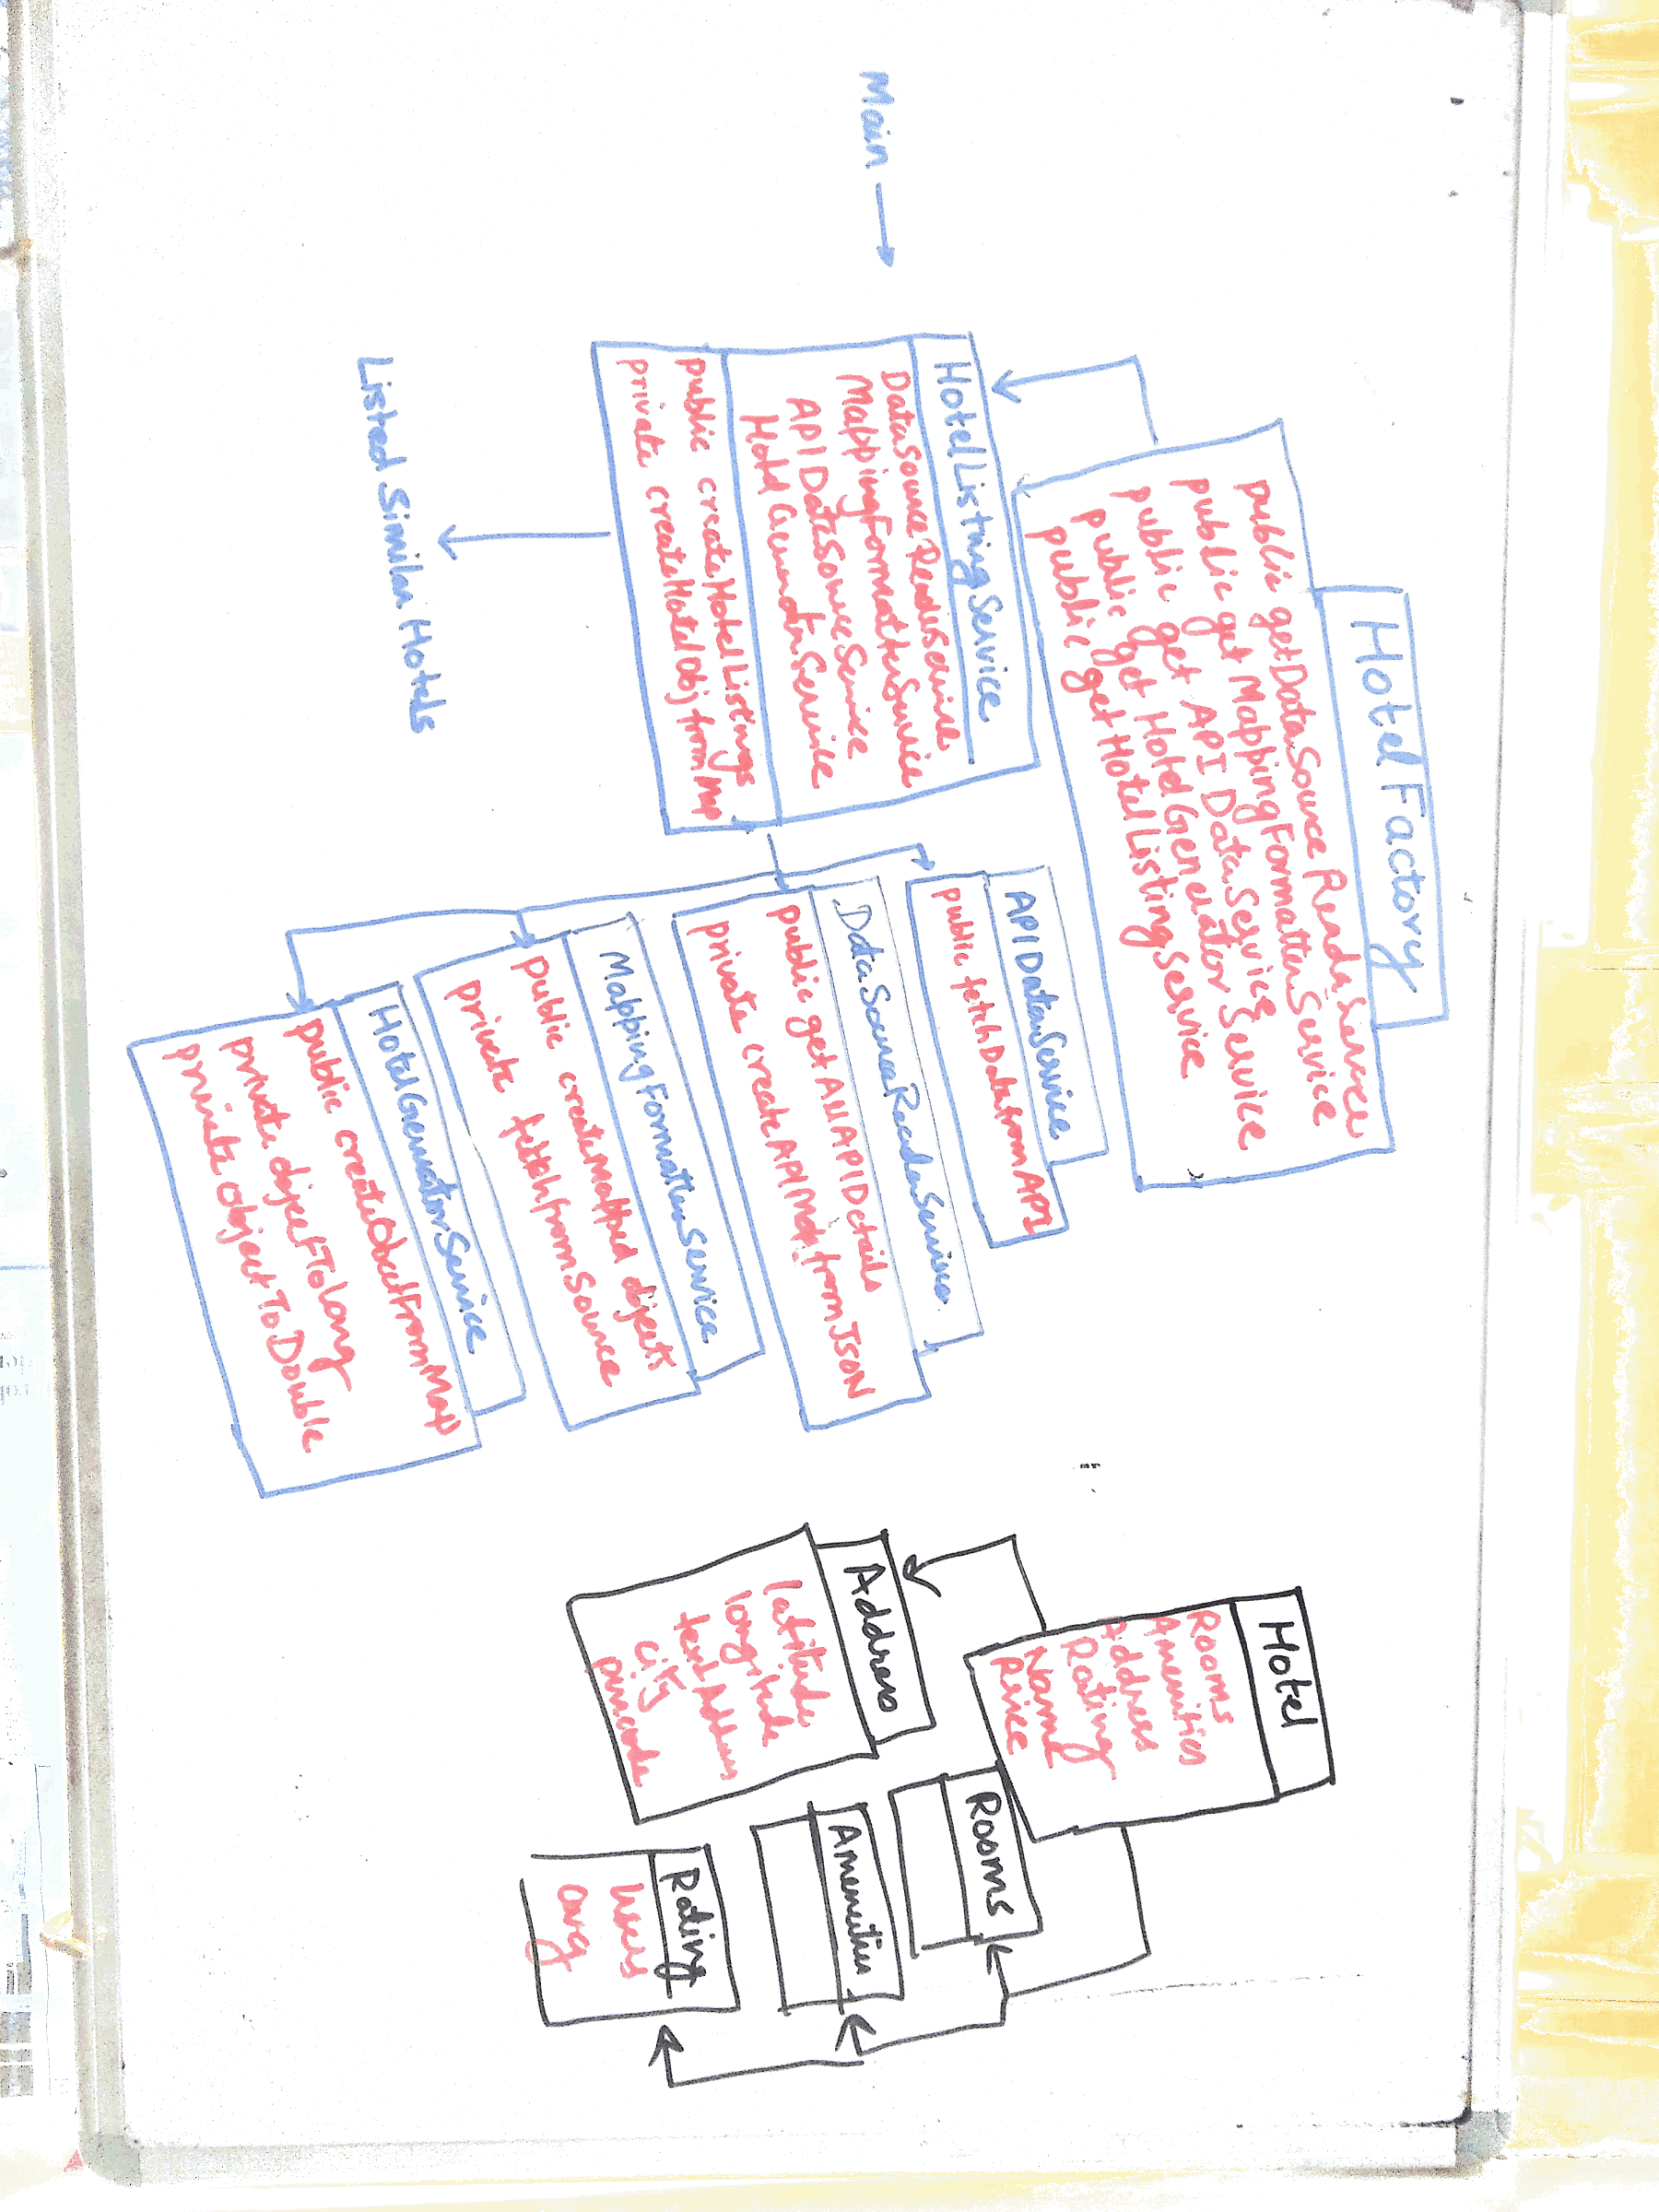 Main
HotelFactory
public getDataSourceReaderService
public get MappingFormatterService
public get API DataService
public get HotelGenerator Service
public getHotelListingService
HotelListingService
DataSourceReaderService
MappingFormatterService
API DataSourceService
Hotel GeneratorService
public createHotelListings
private createHotelObjfromMap
Listed Similar Hotels
APIDataService
public fetchDatafromAPI
DataSourceReaderService
public getAllAPIDetails
private createAPIMapfromJSON
MappingFormatterService
public createMapped objects
private fetchfromSource
HotelGeneratorService
public createObectFromMap
private objectToLong
private objectToDouble
Hotel
Rooms
Amenities
Address
Rating
Name
Price
Address
latitude
longitude
textAddress
city
pincode
Rooms
Amenities
Rating
Users
avg